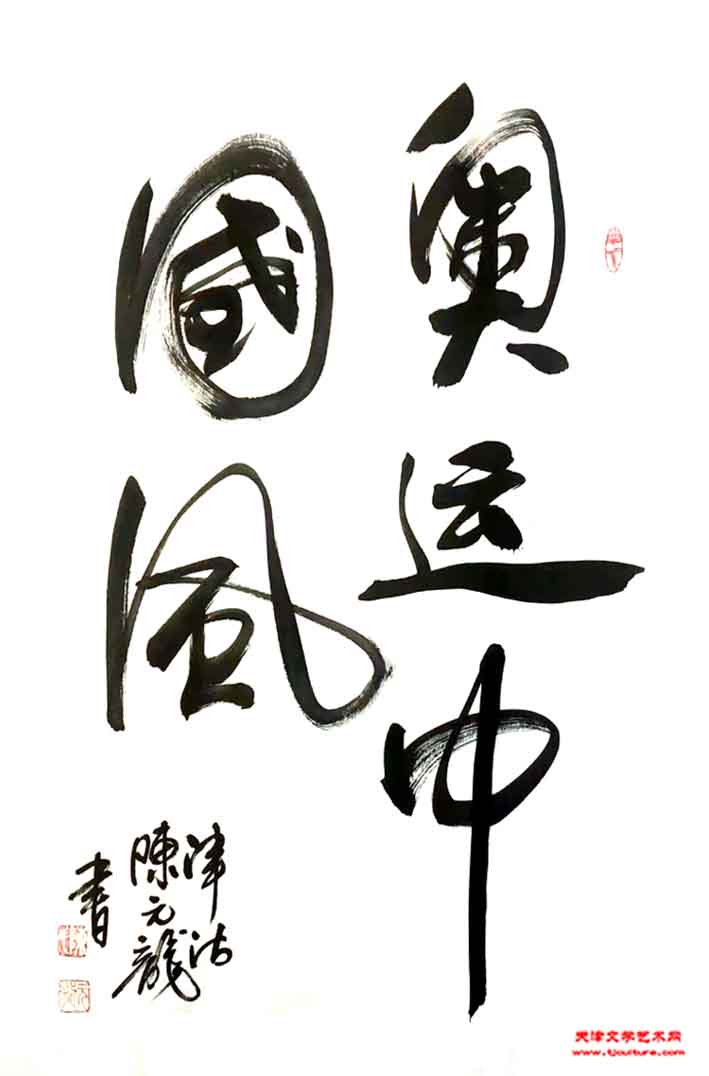 奥运中
國风
津沽
陳元龍
書
天津文学艺术网
www.tjculture.com